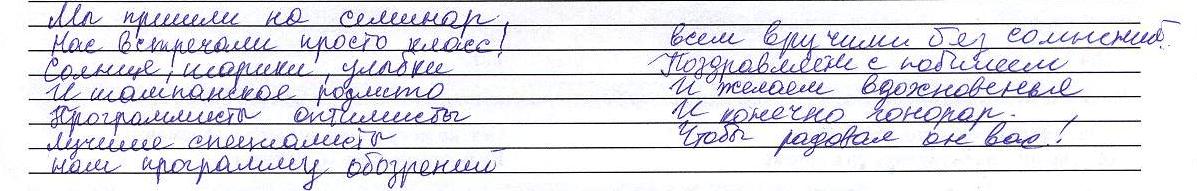 Мы пришли на семинар,
Нас встречали просто класс!
Солнце, шарики, улыбки
И шампанское разлито
Программисты оптимисты
Лучшие специалисты
Нам программу обозрений
всем вручили без сомнений
Поздравляем с юбилеем
И желаем вдохновенья
И конечно гонорар.
Чтобы радовал он вас!